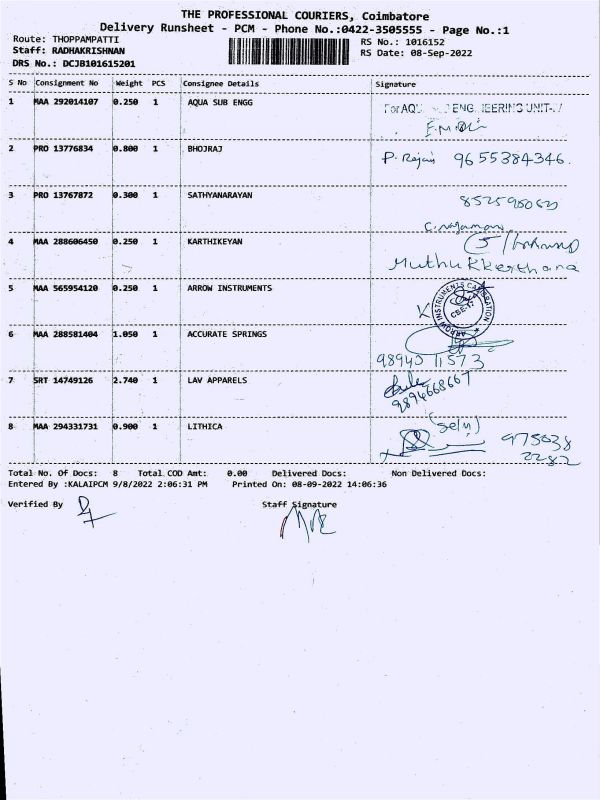 THE PROFESSIONAL COURIERS, Coimbatore
Delivery Runsheet - PCM - Phone No.:0422-3505555 - Page No.:1
Route: THOPPAMPATTI RS No.: 1016152
Staff: RADHAKRISHNAN RS Date: 08-Sep-2022
DRS No.: DCJB101615201
S No Consignment No Weight PCS Consignee Details Signature
1 MAA 292014107 0.250 1 AQUA SUB ENGG For AQU ENG IEERING UNIT-
2 PRO 13776834 0.800 1 BHOJRAJ P. Rajai 9655384346.
3 PRO 13767872 0.300 1 SATHYANARAYAN
4 MAA 288606450 0.250 1 KARTHIKEYAN
Muthukkeerthana
5 MAA 565954120 0.250 1 ARROW INSTRUMENTS
ARROW INSTRUMENTS CALIBRATION
CBE-17
6 MAA 288581404 1.050 1 ACCURATE SPRINGS
98943 11573
7 SRT 14749126 2.740 1 LAV APPARELS
9894668667
8 MAA 294331731 0.900 1 LITHICA (selu)
975038
2282
Total No. Of Docs: 8 Total COD Amt: 0.00 Delivered Docs: Non Delivered Docs:
Entered By :KALAIPCM 9/8/2022 2:06:31 PM Printed On: 08-09-2022 14:06:36
Verified By Staff Signature